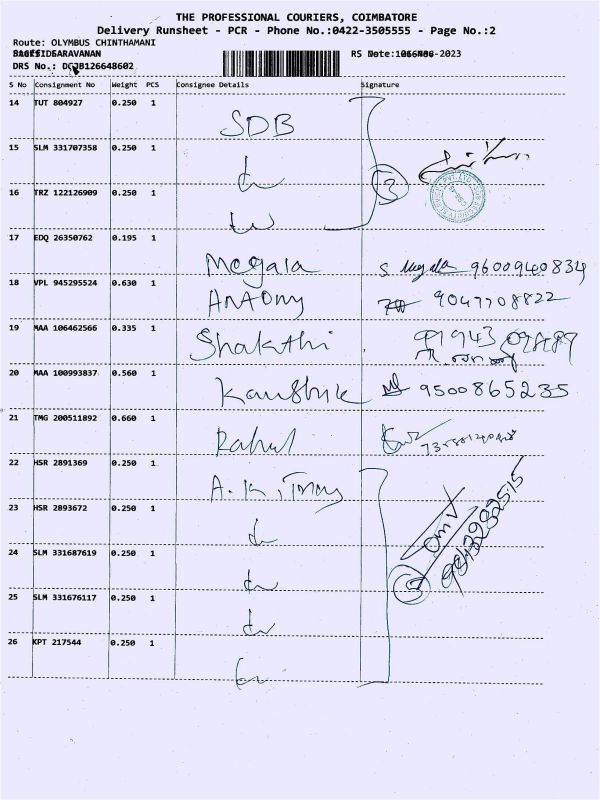 THE PROFESSIONAL COURIERS, COIMBATORE
Delivery Runsheet - PCR - Phone No.:0422-3505555 - Page No.:2
Route: OLYMBUS CHINTHAMANI
SARAVANAN
RS -2023
DRS No.: 126648602
S No Consignment No Weight PCS Consignee Details Signature
14 TUT 804927 0.250 1 SDB
15 SLM 331707358 0.250 1
16 TRZ 122126909 0.250 1
17 EDQ 26350762 0.195 1 Mogala 9600940834
18 VPL 945295524 0.630 1 Antony 9047708822
19 MAA 106462566 0.335 1 Shakthi
20 MAA 100993837 0.560 1 9500865235
21 TMG 200511892 0.660 1 Rahul
22 HSR 2891369 0.250 1
23 HSR 2893672 0.250 1
24 SLM 331687619 0.250 1
25 SLM 331676117 0.250 1
26 KPT 217544 0.250 1